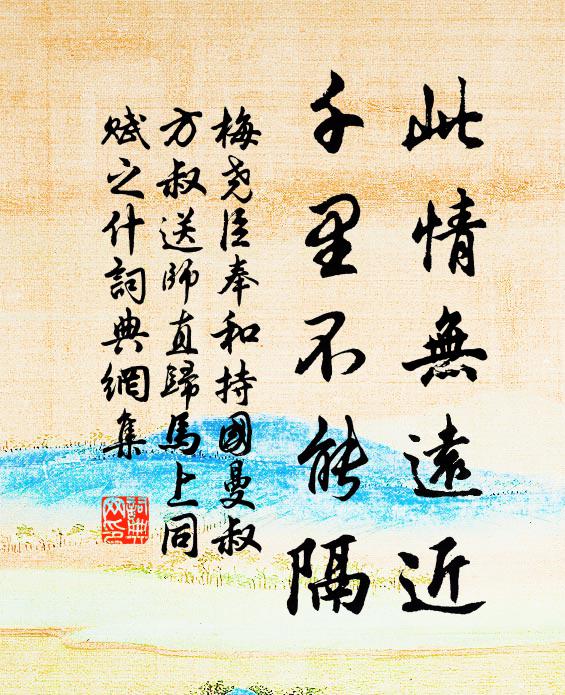 此情無遠近
千里不能隔
梅堯臣奉和持國曼叔
方叔送師直歸馬上同
賦之什詞典網集
詞典